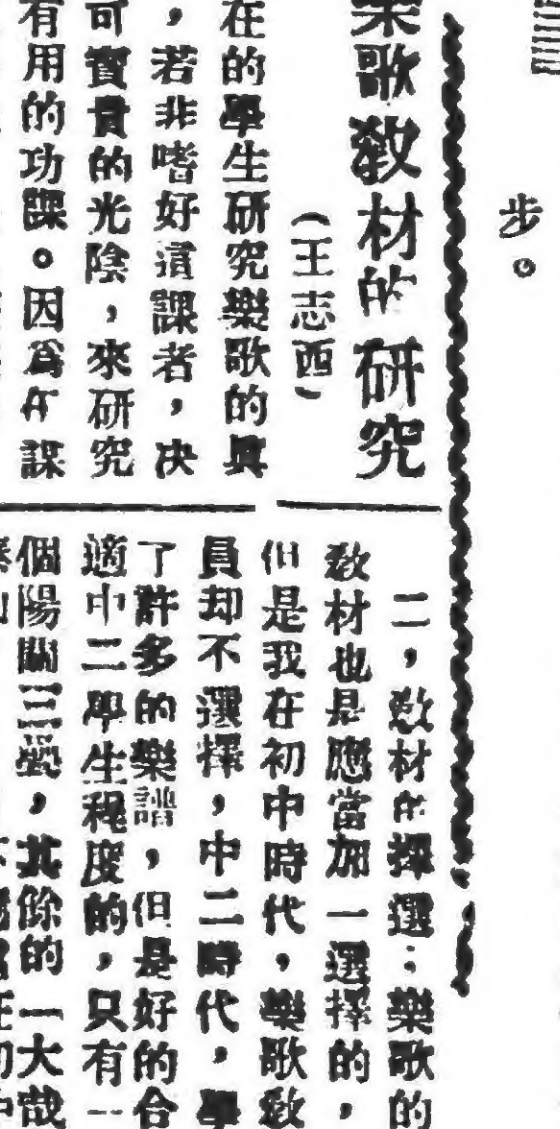 步。
樂歌教材的研究
(王志西)
在的學生研究樂歌的興
,若非嗜好這課者,决
可寶貴的光陰,來研究
有用的功課。因爲在課
二,敎材的擇選:樂歌的
敎材也是應當加一選擇的,
但是我在初中時代,樂歌敎
員却不選擇,中二時代,學
了許多的樂譜,但是好的合
適中二學生程度的,只有一
個陽關三疊,其餘的一大哉